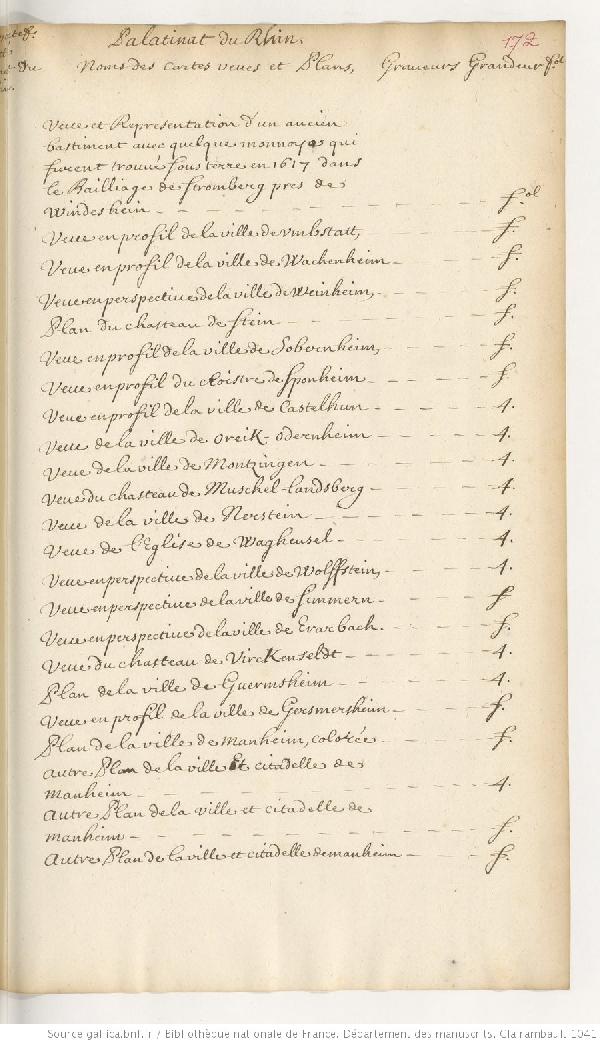 Palatinat du Rhin. 172
du Noms des cartes veues et Plans, Graveurs Grandeur fol
Veue et Representation d'un ancien
bastiment avec quelque monnoyes qui
furent trouvé sous terre en 1617 dans
le Bailliage de Stromberg pres de
Windeshein f.ol
Veue en profil de la ville de Umbstatt, f.
Veue en profil de la ville de Wachenheim f.
Veue en perspective de la ville de Weinheim, f.
Plan du chasteau de Stein f.
Veue en profil de la ville de Sobernheim, f.
Veue en profil du cloistre de Sponheim f.
Veue en profil de la ville de Castelhun 4.
Veue de la ville de Oreik-odernheim 4.
Veue de la ville de Montzingen 4.
Veue du chasteau de Muschel-landsberg 4.
Veue de la ville de Nerstein 4.
Veue de l'Eglise de Wagheusel 4.
Veue en perspective de la ville de Wolffstein, 4.
Veue en perspective de la ville de Simmern f.
Veue en perspective de la ville de Trarbach. f.
Veue du chasteau de VircKenseldt 4.
Plan de la ville de Guermsheim 4.
Veue en profil de la ville de Germersheim f.
Plan de la ville de manheim, colorée f.
Autre Plan de la ville Et citadelle de
manheim 4.
Autre Plan de la ville et citadelle de
manheim f.
Autre Plan de la ville et citadelle de manheim f.
Source gallica.bnf.fr / Bibliothèque nationale de France. Département des manuscrits. Clairambault 1041